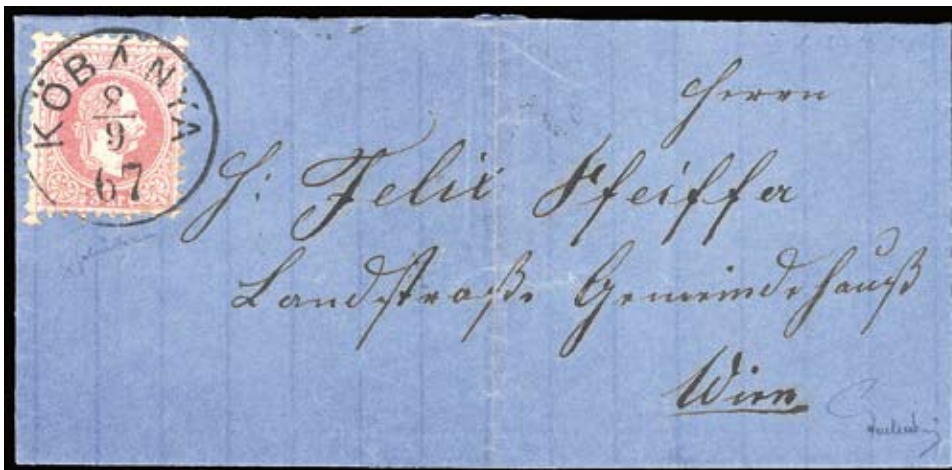 KÖBÁNYA
9
9
67
Herrn
H: Felix Pfeiffer
Landstraße Gemeindehauß
Wien